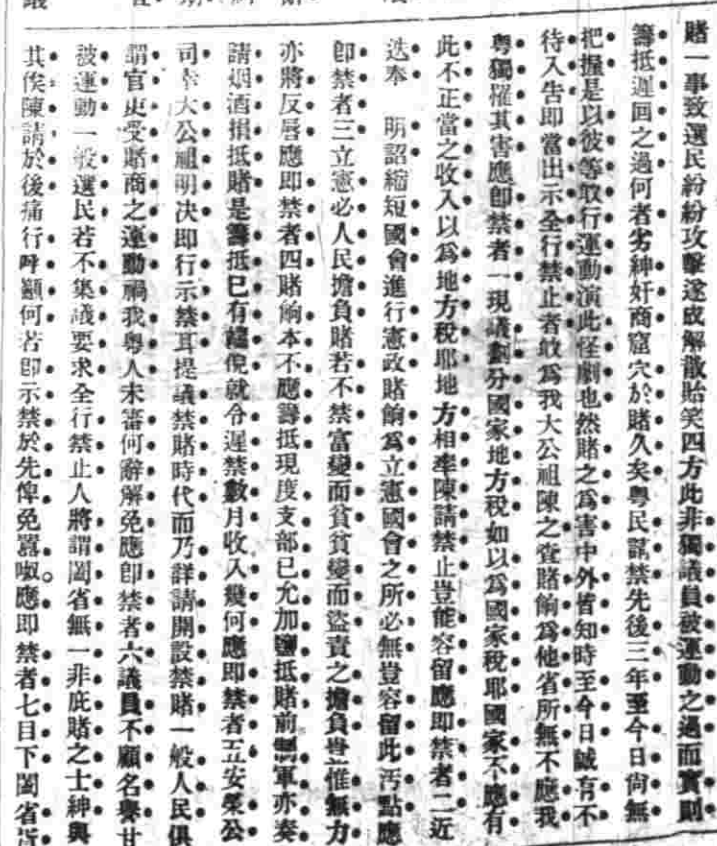 賭一事致選民紛紛攻擊遂成解散貽笑四方此非獨議員被運動之過而實則
籌抵遲回之過何者劣紳奸商窟穴於賭久矣粵民謀禁先後三年至今日尙無
把握是以彼等敢行運動演此怪劇也然賭之爲害中外皆知時至今日誠有不
待入告即當出示全行禁止者敢爲我大公祖陳之查賭餉爲他省所無不應我
粵獨罹其害應即禁者一現議劃分國家地方稅如以爲國家稅耶國家不應有
此不正當之收入以爲地方稅耶地方相率陳請禁止豈能容留應即禁者二近
迭奉 明詔縮短國會進行憲政賭餉爲立憲國會之所必無豈容留此汚點應
卽禁者三立憲必人民擔負賭若不禁富變而貧貧變而盜責之擔負豈惟無力
亦將反唇應即禁者四賭餉本不應籌抵現度支部已允加鹽抵賭前制軍亦奏
請烟酒捐抵賭是籌抵已有端倪就令遲禁數月收入幾何應即禁者五安榮公
司幸大公祖明决即行示禁耳提議禁賭時代而乃詳請開設禁賭一般人民俱
謂官吏受賭商之運動禍我粵人未審何辭解免應即禁者六議員不顧名譽甘
被運動一般選民若不集議要求全行禁止人將謂闔省無一非庇賭之士紳與
其俟陳請於後痛行呼籲何若卽示禁於先俾免囂呶。應即禁者七目下闔省皆